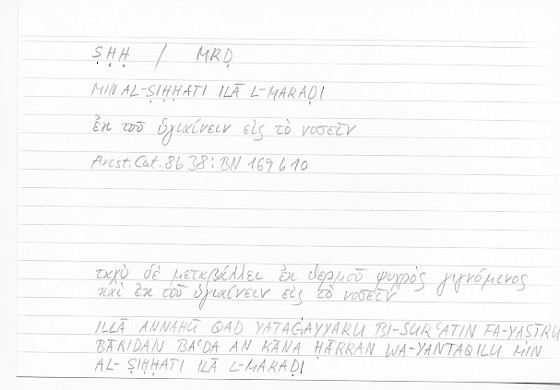 ṢḤḤ / MRḌ
MIN AL-ṢIḤḤATI ILĀ L-MARAḌI
ἐκ τοῦ ὑγιαίνειν εἰς τὸ νοσεῖν
Arist. Cat. 8b38 : BN 169b10
ταχὺ δὲ μεταβάλλει ἐκ θερμοῦ ψυχρὸς γιγνόμενος
καὶ ἐκ τοῦ ὑγιαίνειν εἰς τὸ νοσεῖν
ILLĀ ANNAHŪ QAD YATAĠAYYARU BI-SURʿATIN FA-YAṢĪRU
BĀRIDAN BAʿDA AN KĀNA ḤĀRRAN WA-YANTAQILU MIN
AL-ṢIḤḤATI ILĀ L-MARAḌI